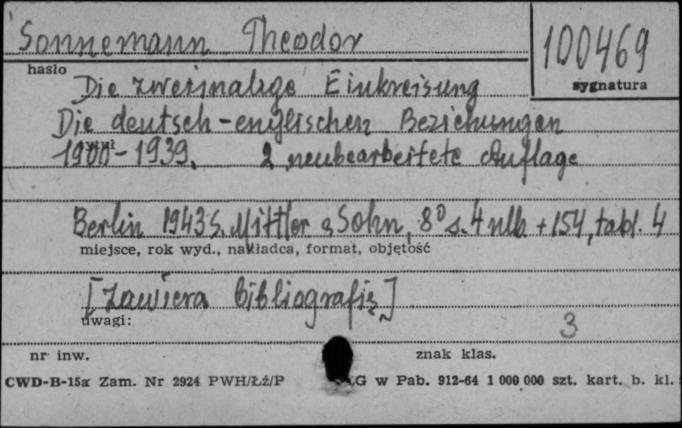 Sonnemann Theodor
100469
hasło
sygnatura
Die zweimalige Einkreisung
Die deutsch-englischen Beziehungen
1900-1939. 2 neubearbeitete Auflage
Berlin 1943 S. Mittler & Sohn, 8° s. 4 nlb + 154, tabl. 4
miejsce, rok wyd., nakładca, format, objętość
[zawiera bibliografię]
uwagi:
3
nr inw.
znak klas.
CWD-B-15a Zam. Nr 2924 PWH/Łż/P
G w Pab. 912-64 1 000 000 szt. kart. b. kl.